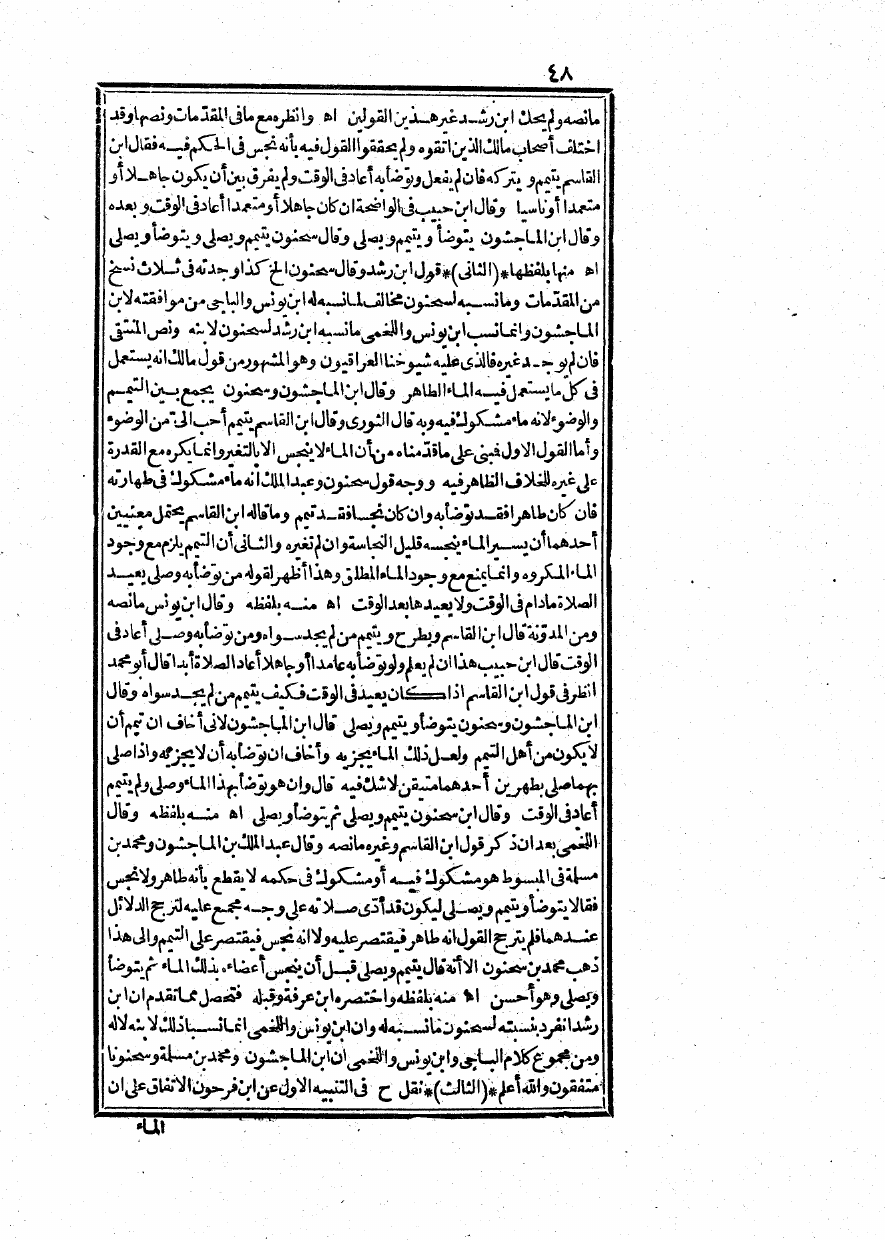 ٤٨
مانصه ولم يحك ابن رشد غير هذين القولين اه وانظره مع ما فى المقدّمات ونصها وقد
اختلف أصحاب مالك الذين اتقوه ولم يحققوا القول فيه بأنه نجس فى الحكم فيه فقال ابن
القاسم يتيمم ويتركه فان لم يفعل وتوضأ به أعاد فى الوقت ولم يفرق بين أن يكون جاهلا أو
متعمدا أوناسيا وقال ابن حبيب فى الواضحة ان كان جاهلا أو متعمدا أعاد فى الوقت وبعده
وقال ابن الماجشون يتوضأ ويتيمم ويصلى وقال سحنون يتيمم ويصلى ويتوضأ ويصلى
اه منها بلفظها *(الثانى)* قول ابن رشد وقال سحنون الخ كذا وجدته فى ثلاث نسخ
من المقدّمات وما نسبه لسحنون مخالف لما نسبه له ابن يونس والباجى من موافقته لابن
الماجشون وانما نسب ابن يونس واللخمى ما نسبه ابن رشد لسحنون لابنه ونص المنتقى
فان لم يوجد غيره فالذى عليه شيوخنا العراقيون وهو المشهور من قول مالك انه يستعمل
فى كل ما يستعمل فيه الماء الطاهر وقال ابن الماجشون وسحنون يجمع بين التيمم
والوضوء لانه ماء مشكوك فيه وبه قال الثورى وقال ابن القاسم يتيمم أحب الىّ من الوضوء
وأما القول الاول فبنى على ما قدّمناه من أن الماء لا ينجس الا بالتغير وانما يكره مع القدرة
على غيره للخلاف الظاهر فيه ووجه قول سحنون وعبد الملك انه ماء مشكوك فى طهارته
فان كان طاهرا فقد توضأ به وان كان نجسا فقد تيمم وما قاله ابن القاسم يحتمل معنيين
أحدهما أن يسير الماء ينجسه قليل النجاسة وان لم تغيره والثانى أن التيمم يلزم مع وجود
الماء المكروه وانما يمنع مع وجود الماء المطلق وهذا أظهر لقوله من توضأ به وصلى يعيد
الصلاة مادام فى الوقت ولا يعيدها بعد الوقت اه منه بلفظه وقال ابن يونس مانصه
ومن المدوّنة قال ابن القاسم ويطرح ويتيمم من لم يجد سواه ومن توضأ به وصلى أعاد فى
الوقت قال ابن حبيب هذا ان لم يعلم ولو توضأ به عامدا أو جاهلا أعاد الصلاة أبدا قال أبو محمد
انظر فى قول ابن القاسم اذا كان يعيد فى الوقت فكيف يتيمم من لم يجد سواه وقال
ابن الماجشون وسحنون يتوضأ ويتيمم ويصلى قال ابن الماجشون لانى أخاف ان تيمم أن
لا يكون من أهل التيمم ولعل ذلك الماء يجزيه وأخاف ان توضأ به أن لا يجزيه واذا صلى
بهما صلى بطهرين أحدهما متيقن لا شك فيه قال وان هو توضأ بهذا الماء وصلى ولم يتيمم
أعاد فى الوقت وقال ابن سحنون يتيمم ويصلى ثم يتوضأ ويصلى اه منه بلفظه وقال
اللخمى بعد ان ذكر قول ابن القاسم وغيره مانصه وقال عبد الملك بن الماجشون ومحمد بن
مسلمة فى المبسوط هو مشكوك فيه أو مشكوك فى حكمه لا يقطع بأنه طاهر ولا نجس
فقالا يتوضأ ويتيمم ويصلى ليكون قد أدّى صلاته على وجه مجمع عليه لترجح الدلائل
عندهما فلم يترجح القول انه طاهر فيقتصر عليه ولا انه نجس فيقتصر على التيمم والى هذا
ذهب محمد بن سحنون الا أنه قال يتيمم ويصلى قبل أن ينجس أعضاءه بذلك الماء ثم يتوضأ
ويصلى وهو أحسن اه منه بلفظه واختصره ابن عرفة وقبله فتحصل مما تقدم ان ابن
رشد انفرد بنسبته لسحنون ما نسبه له وان ابن يونس واللخمى انما نسبا ذلك لابنه لا له
ومن مجموع كلام الباجى وابن يونس واللخمى ان ابن الماجشون ومحمد بن مسلمة وسحنونا
متفقون والله أعلم *(الثالث)* نقل ح فى التنبيه الاول عن ابن فرحون الاتفاق على ان
الماء